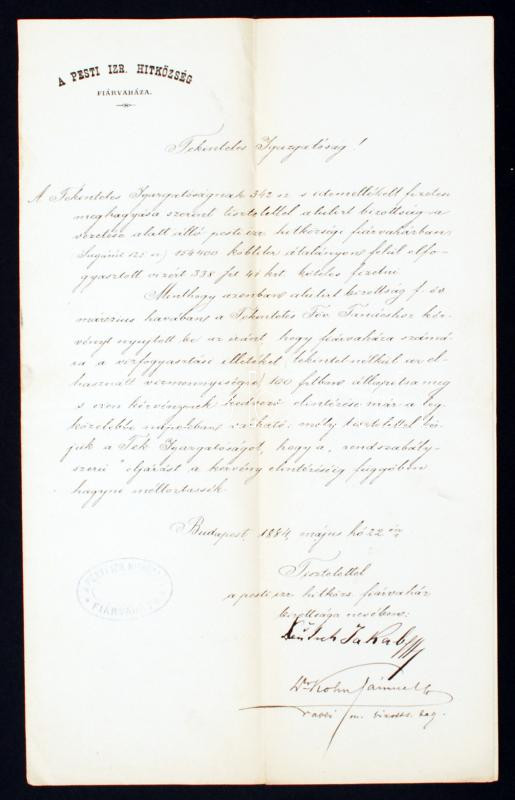 A PESTI IZR. HITKÖZSÉG
FIÁRVAHÁZA.
Tekintetes Igazgatóság!
A Tekintetes Igazgatóságnak 342 sz. s idemellékelt fizetési
meghagyása szerint tisztelettel alulirt bizottság a
vezetése alatt álló pesti izr. hitközségi fiárvaházban
154400 kobliter átalányon felül elfo-
gyasztott vizért 338 frt 41 krt. köteles fizetni
Minthogy azonban alulirt bizottság f. év
márczius havában a Tekintetes Föv. Tanácshoz kér-
vényt nyujtott be az iránt, hogy fiárvaháza számá-
ra a vizfogyasztási illetéket tekintet nélkül az el-
használt vizmennyiségre 100 frtban állapitsa meg
s ezen kérvénynek kedvező elintézése már a leg-
közelebbi napokban várható: mély tisztelettel kér-
jük a Tek. Igazgatóságot, hogy a „rendszabály-
szerü" eljárást a kérvény elintézéséig függőben
hagyni méltóztassék.
Budapest, 1884, május hó 22 én
Tisztelettel
a pesti izr. hitközs. fiárvaház
bizottsága nevében:
Jakab
Dr Kohn Sámuel
rabbi m. bizotts. tag.
A PESTI IZR. HITKÖZSÉG
FIÁRVAHÁZA